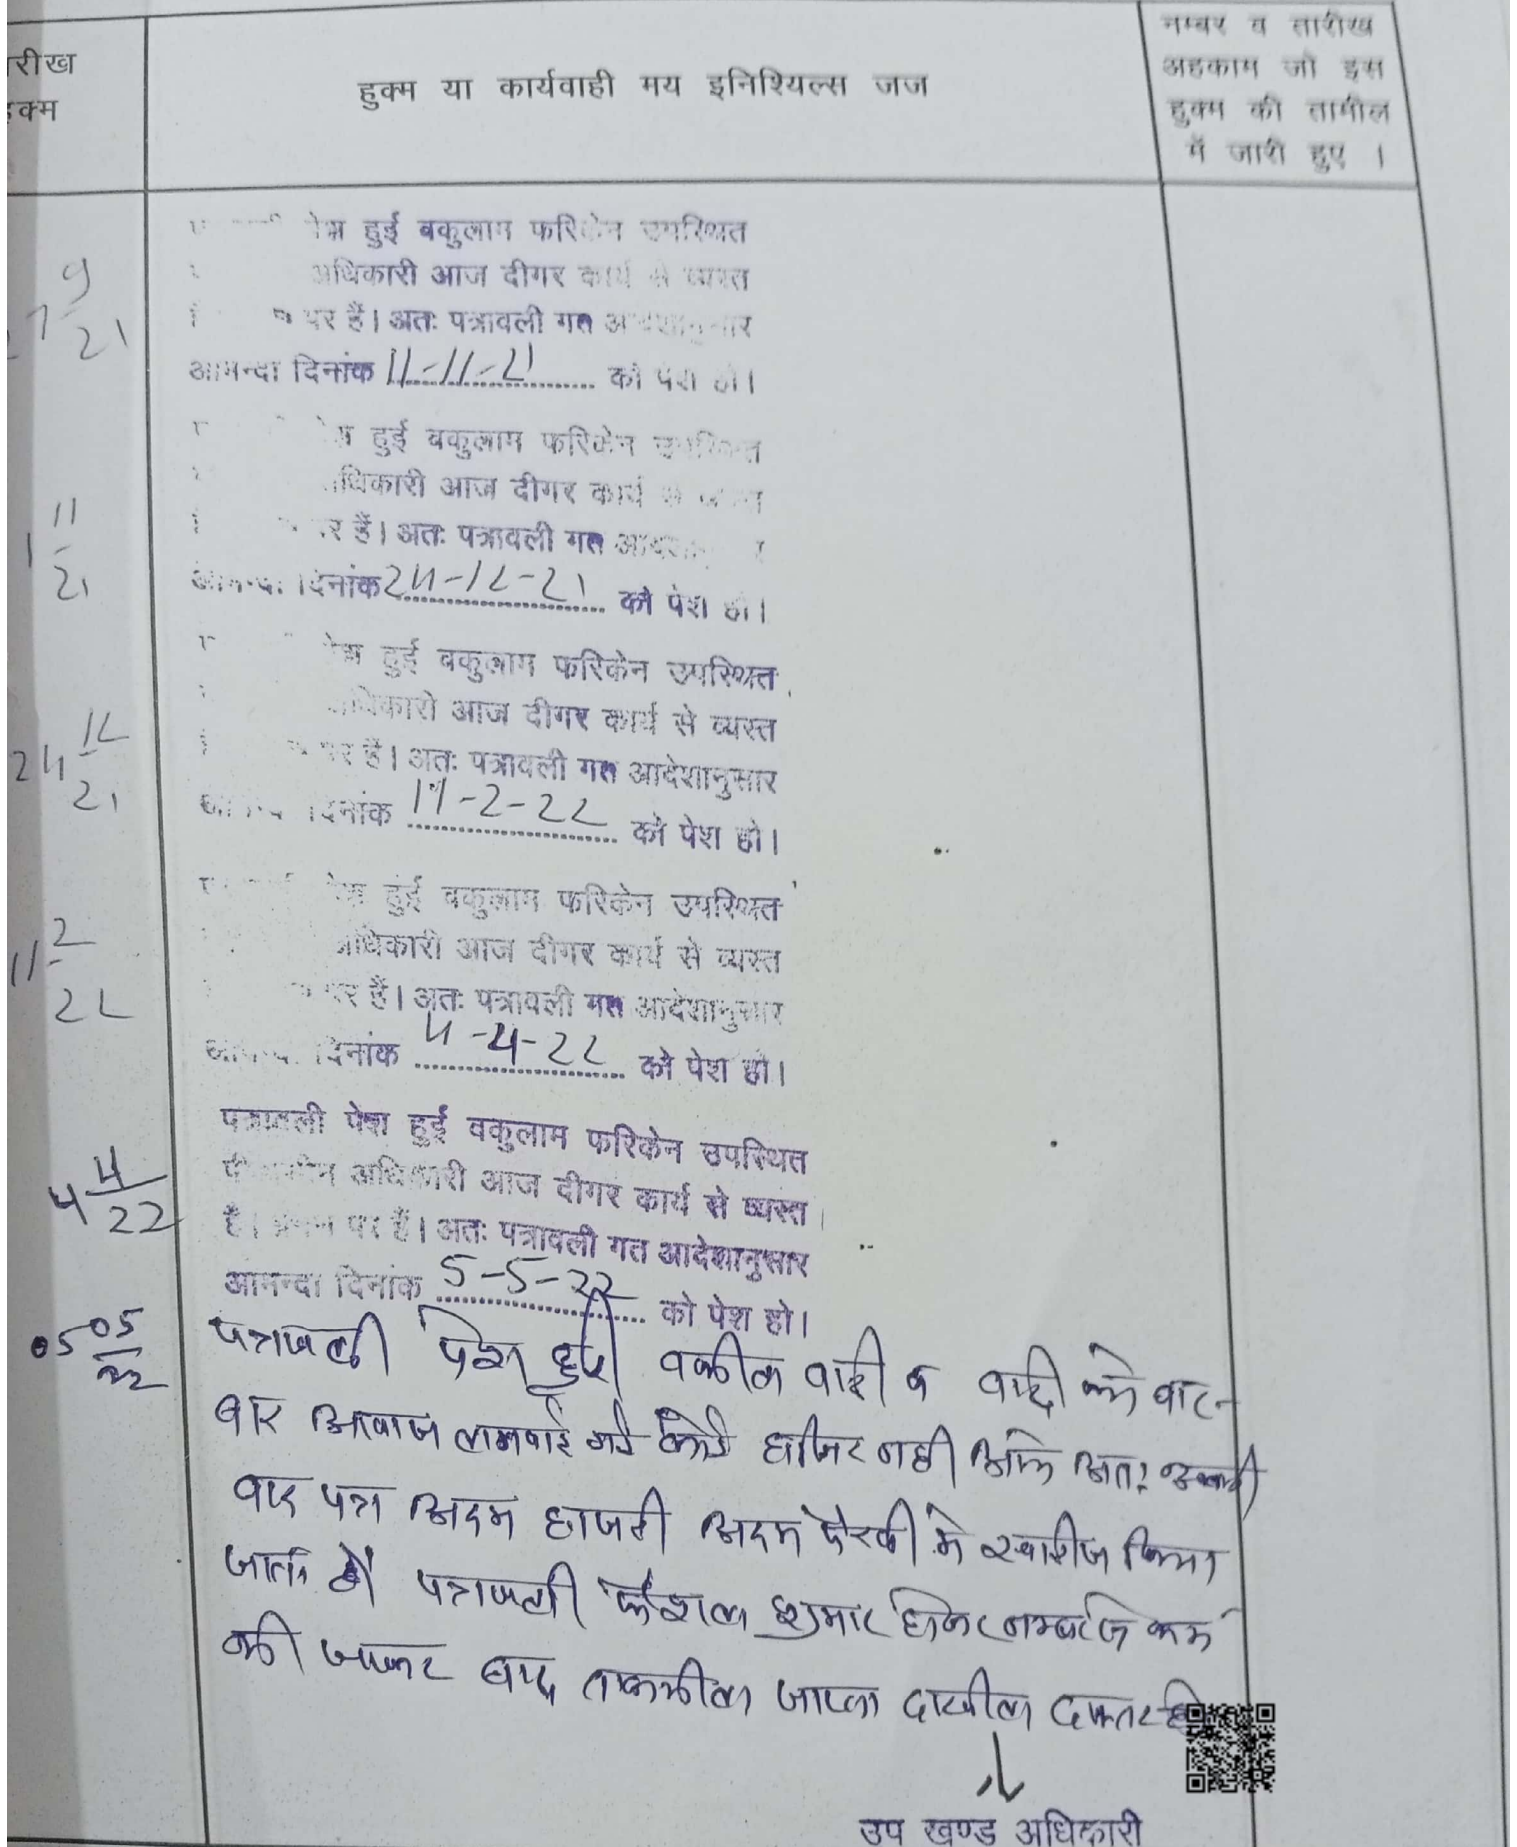 रीख
हुक्म
हुक्म या कार्यवाही मय इनिश्यिल्स जज
नम्बर व तारीख
अहकाम जो इस
हुक्म की तामील
में जारी हुए ।
9
21
पेश हुई वकुलाम फरिकेन उपस्थित
अधिकारी आज दीगर कार्य से व्यस्त
पर हैं। अतः पत्रावली गत आदेशानुसार
आमन्दा दिनांक 11-11-21 को पेश हो।
11
21
हुई वकुलाम फरिकेन उपस्थित
अधिकारी आज दीगर कार्य से
पर हैं। अतः पत्रावली गत
दिनांक 24-12-21 को पेश हो।
24 12
21
पेश हुई वकुलाम फरिकेन उपस्थित
अधिकारी आज दीगर कार्य से व्यस्त
पर हैं। अतः पत्रावली गत आदेशानुसार
दिनांक 11-2-22 को पेश हो।
11 2
22
पेश हुई वकुलाम फरिकेन उपस्थित
अधिकारी आज दीगर कार्य से व्यस्त
पर हैं। अतः पत्रावली गत आदेशानुसार
दिनांक 4-4-22 को पेश हो।
4 4
22
पत्रावली पेश हुई वकुलाम फरिकेन उपस्थित
अधिकारी आज दीगर कार्य से व्यस्त
हैं। पर हैं। अतः पत्रावली गत आदेशानुसार
आमन्दा दिनांक 5-5-22 को पेश हो।
05 05
22
पत्रावली पेश हुई वकील वादी व वादी को बार-
बार आवाज लगवाई गई कोई हाजिर नही आये अतः
वाद पत्र अदम हाजरी अदम पैरवी मे खारीज किया
जाता है पत्रावली फैशल शुमार होकर नम्बर से कम
की जाकर बाद तकमील जाप्ता दाखील दफ्तर हो
उप खण्ड अधिकारी